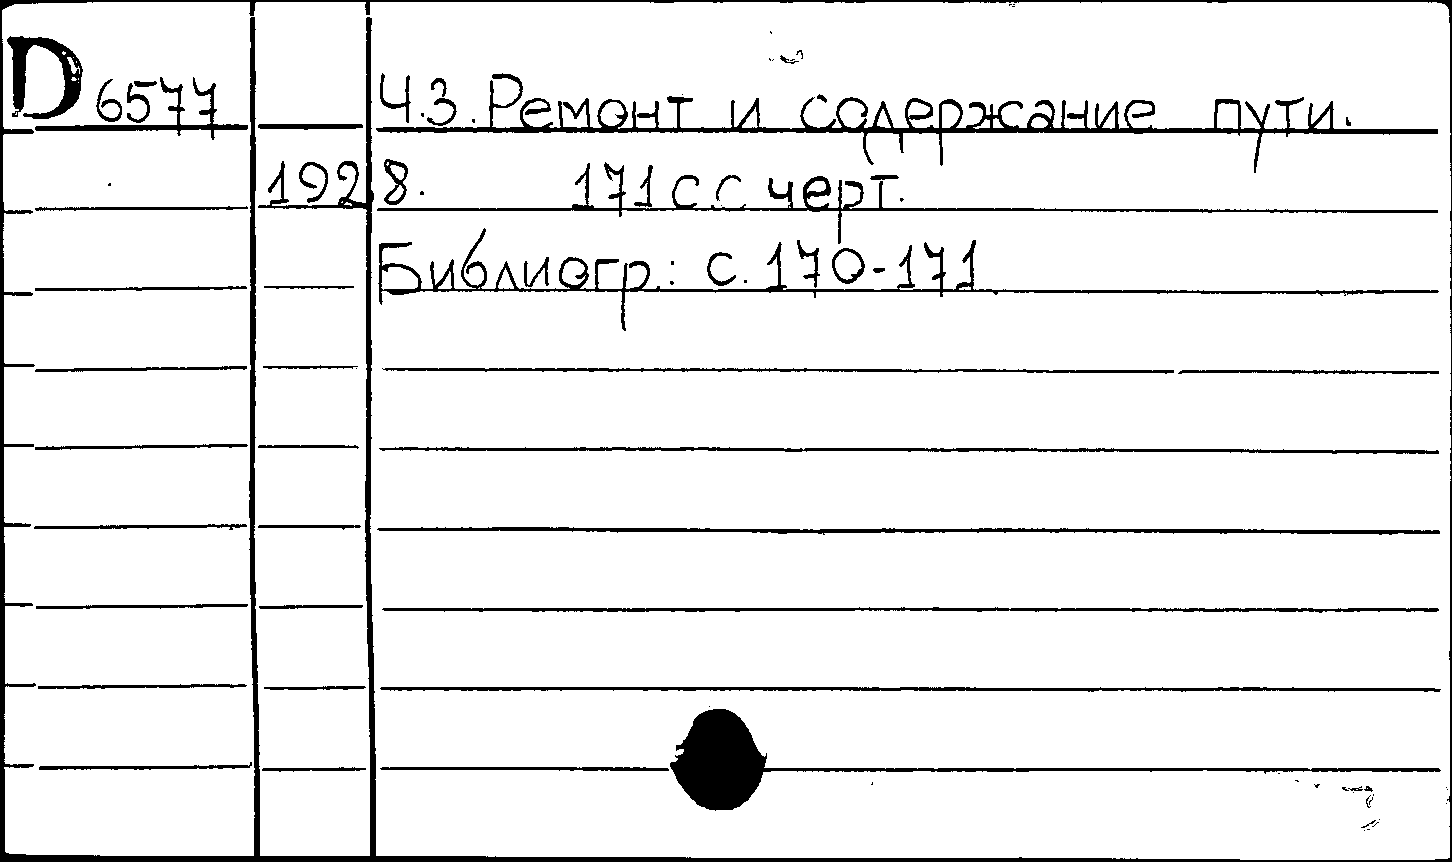 D 6577 Ч.3. Ремонт и содержание пути.
1928. 171 с. с черт.
Библиогр.: с. 170-171